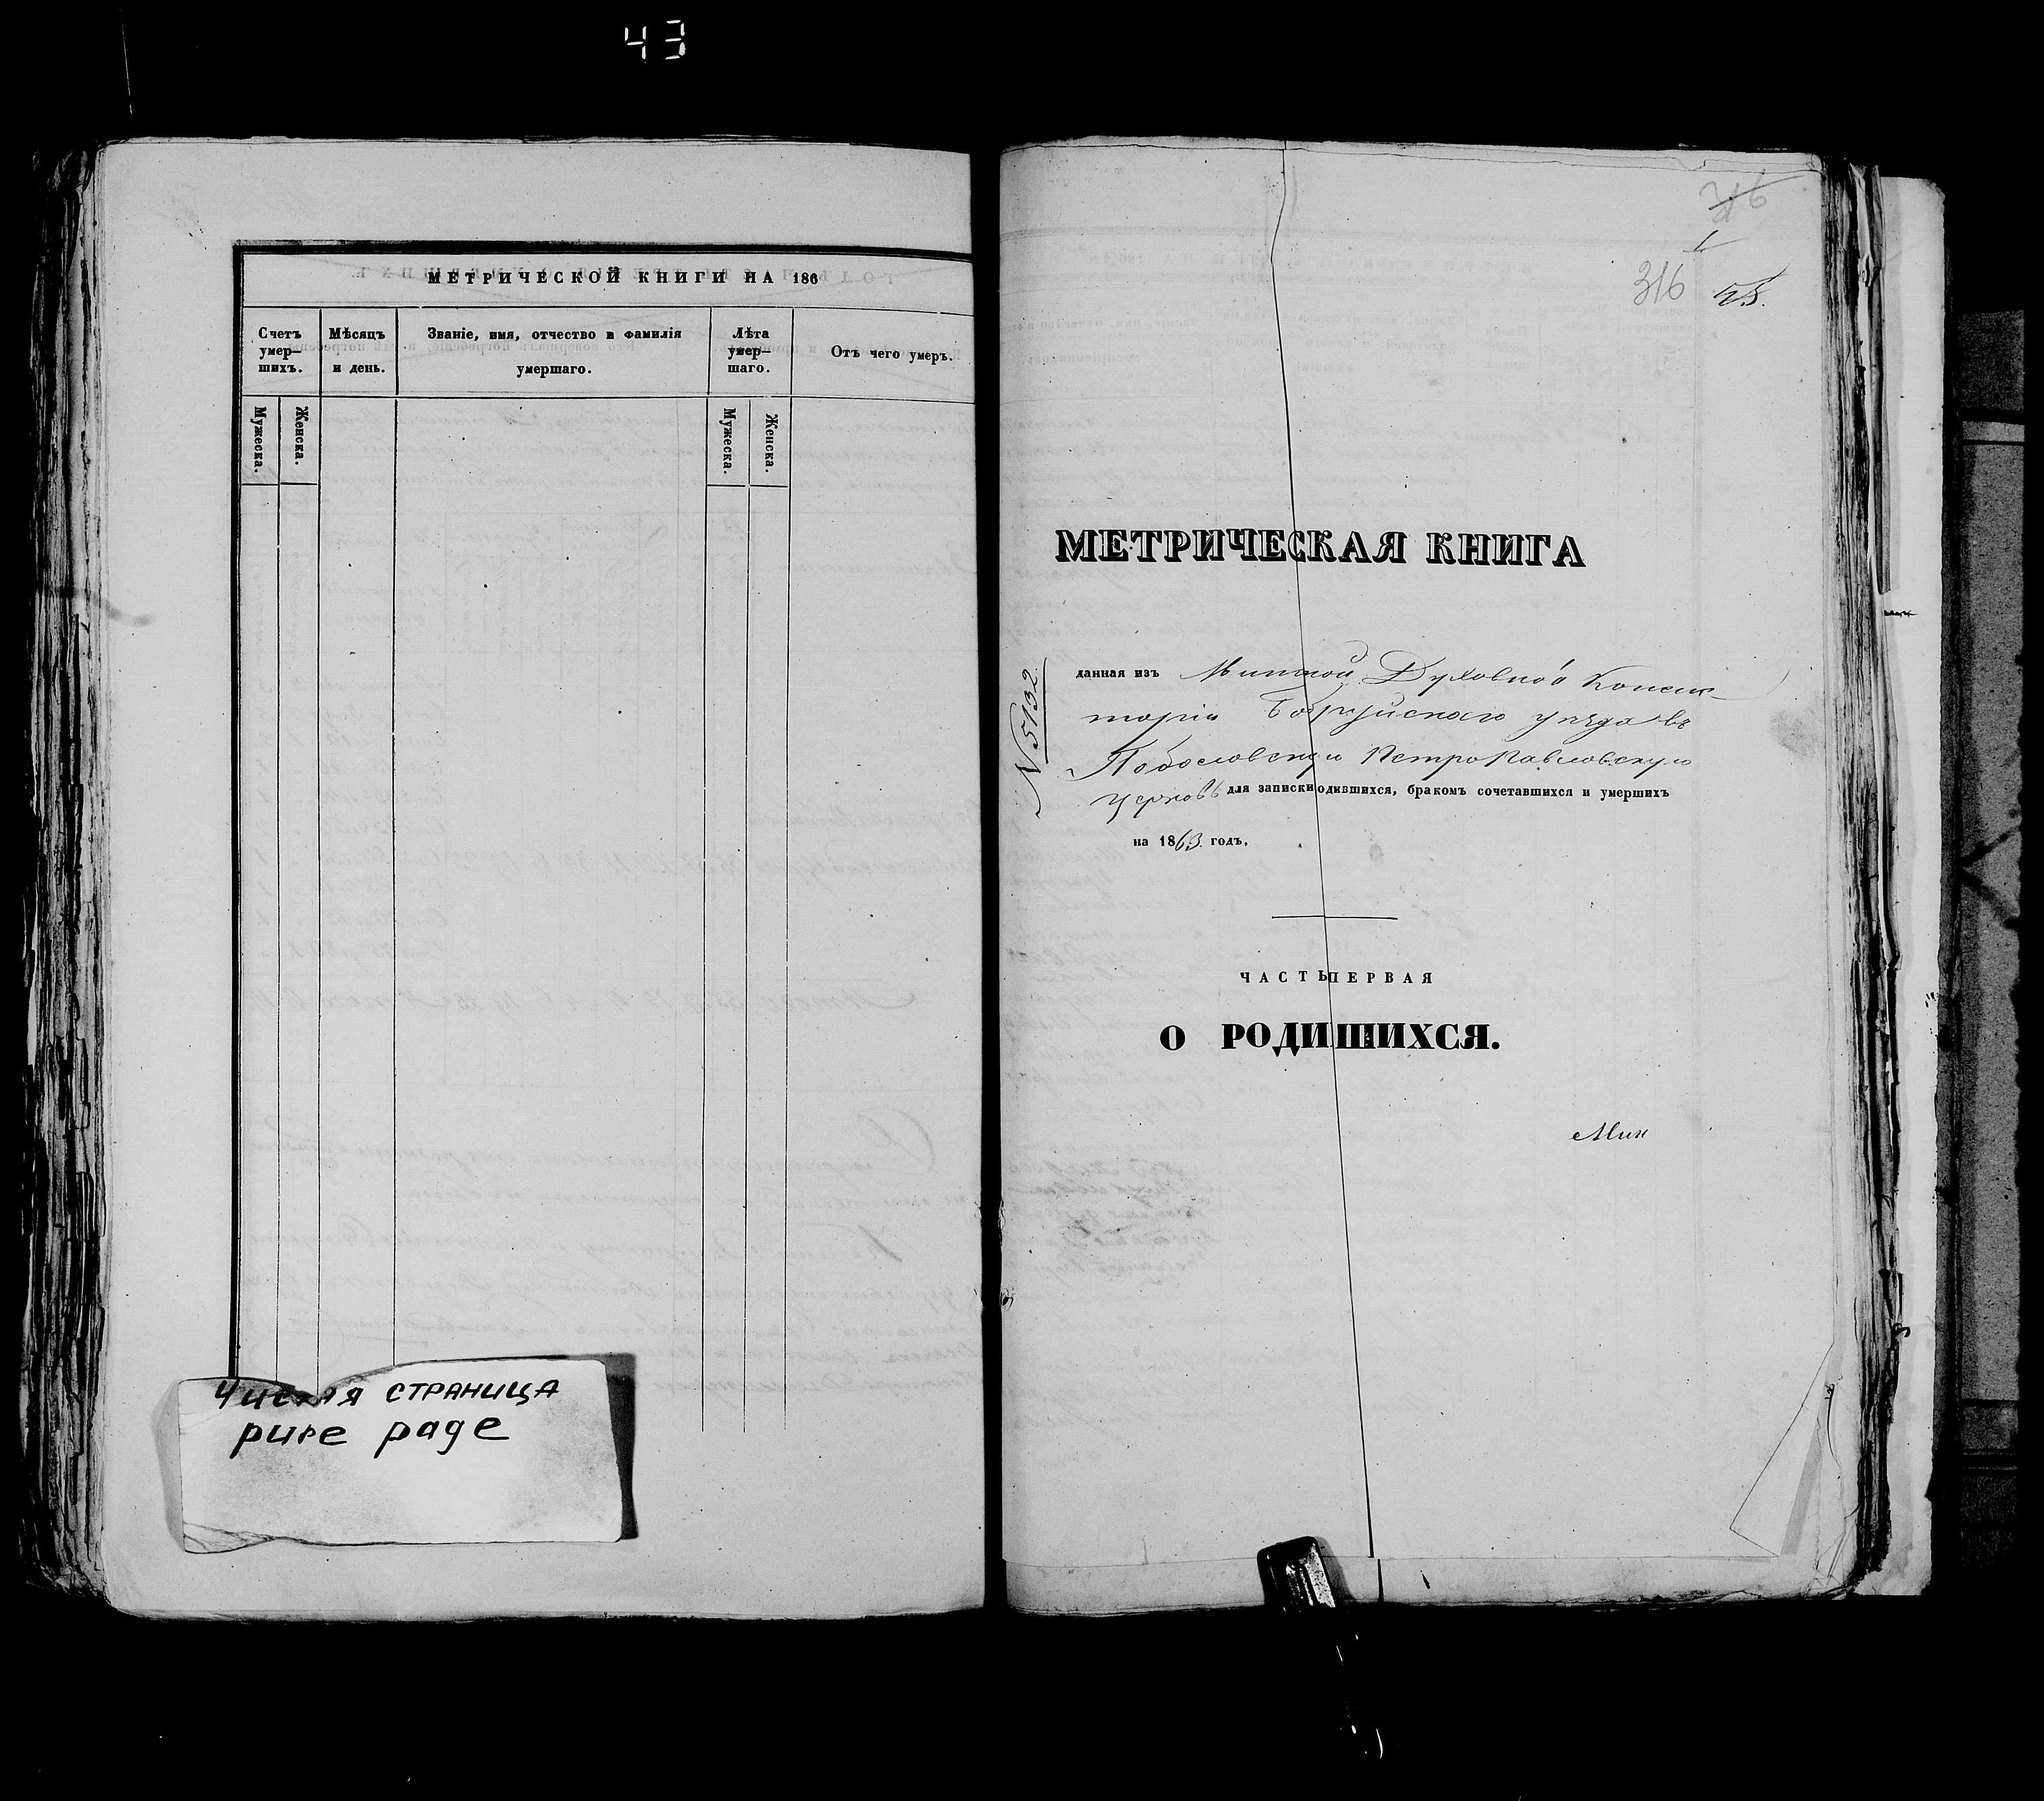 43
МЕТРИЧЕСКОЙ КНИГИ НА 186
Счетъ умер-шихъ.
Мѣсяцъ и день.
Званіе, имя, отчество и фамилія умершаго.
Лѣта умер-шаго.
Отъ чего умеръ.
Мужеска.
Женска.
Мужеска.
Женска.
Чистая страница
pure page
316
МЕТРИЧЕСКАЯ КНИГА
№ 5132
данная изъ Минской Духовной Консис-
торіи Бобруйскаго уѣзда въ
Петропавловскую
церковь для записки одившихся, бракомъ сочетавшихся и умершихъ
на 1863 годъ,
ЧАСТЬ ПЕРВАЯ
О РОДИШИХСЯ.
Мин